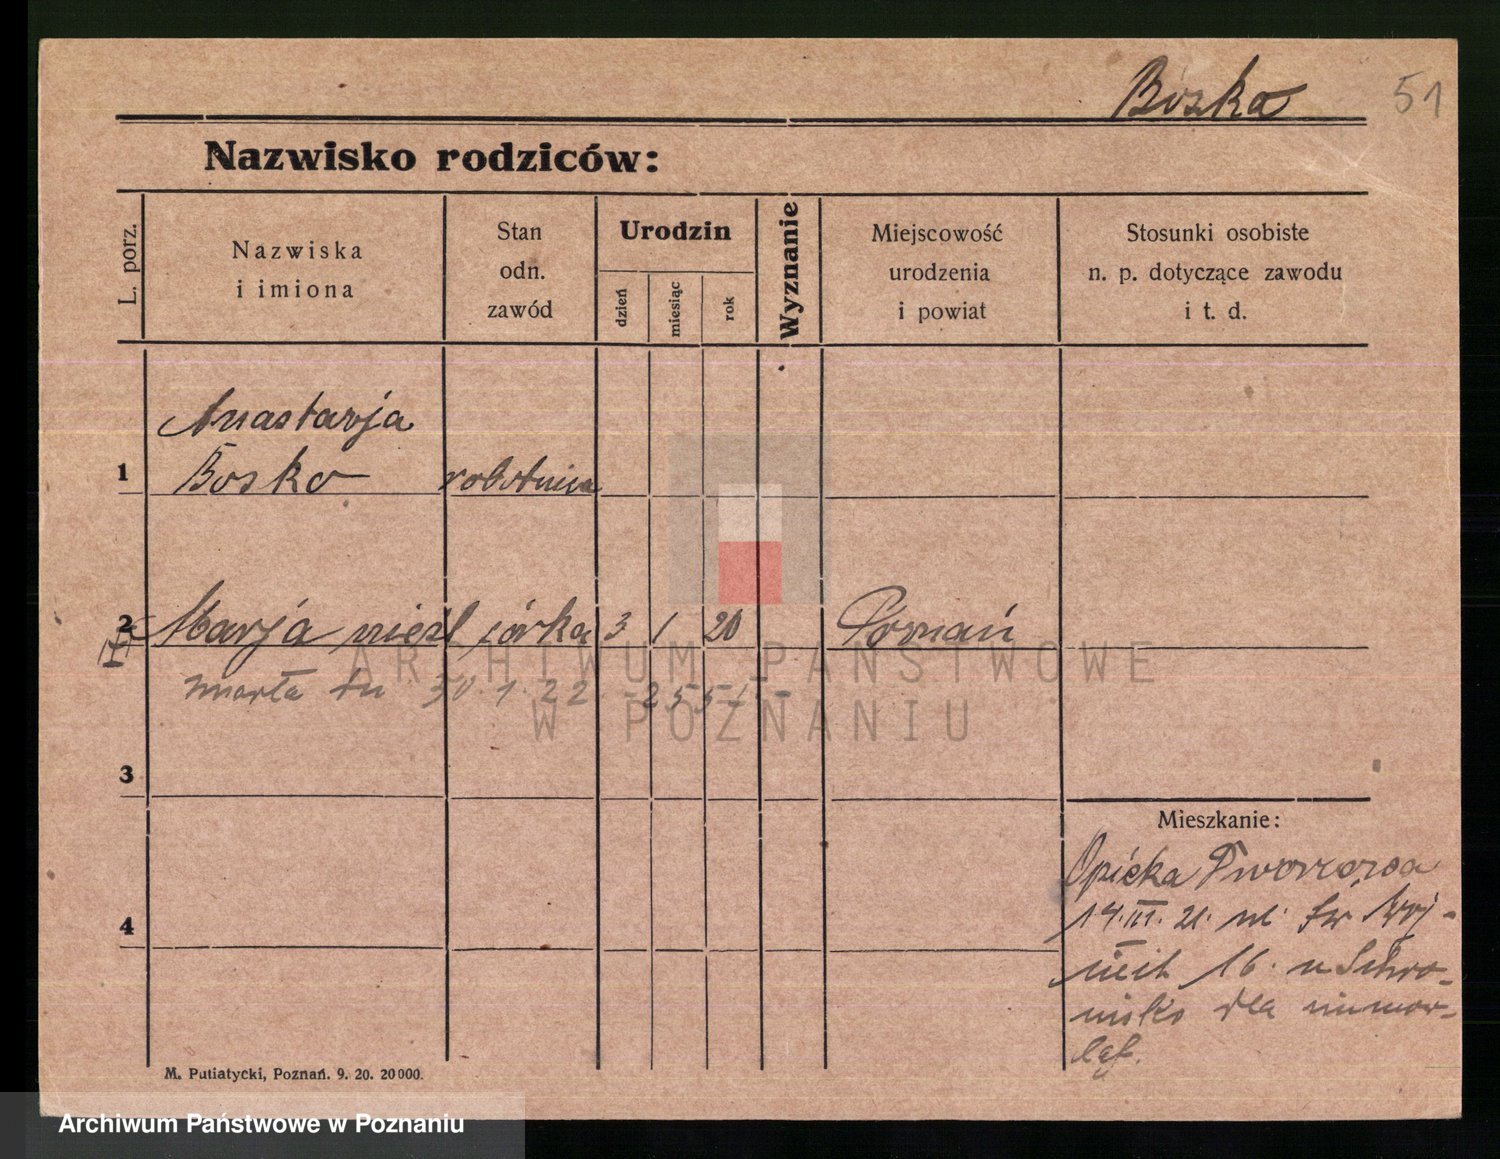 Bozka 51
Nazwisko rodziców:
L. porz.
Nazwiska
i imiona
Stan
odn.
zawód
Urodzin
dzień
miesiąc
rok
Wyznanie
Miejscowość
urodzenia
i powiat
Stosunki osobiste
n. p. dotyczące zawodu
i t. d.
Anastazja
1 Bosko robotnica
2 Marja nieśl córka 3 1 20 Poznań
zmarła dn 30.1.22
ARCHIWUM PAŃSTWOWE
W POZNANIU
3
Mieszkanie:
Opieka
14.III.21. ul. Św
4
16. w Schro-
nisko dla niemow-
ląt.
M. Putiatycki, Poznań. 9. 20. 20000.
Archiwum Państwowe w Poznaniu